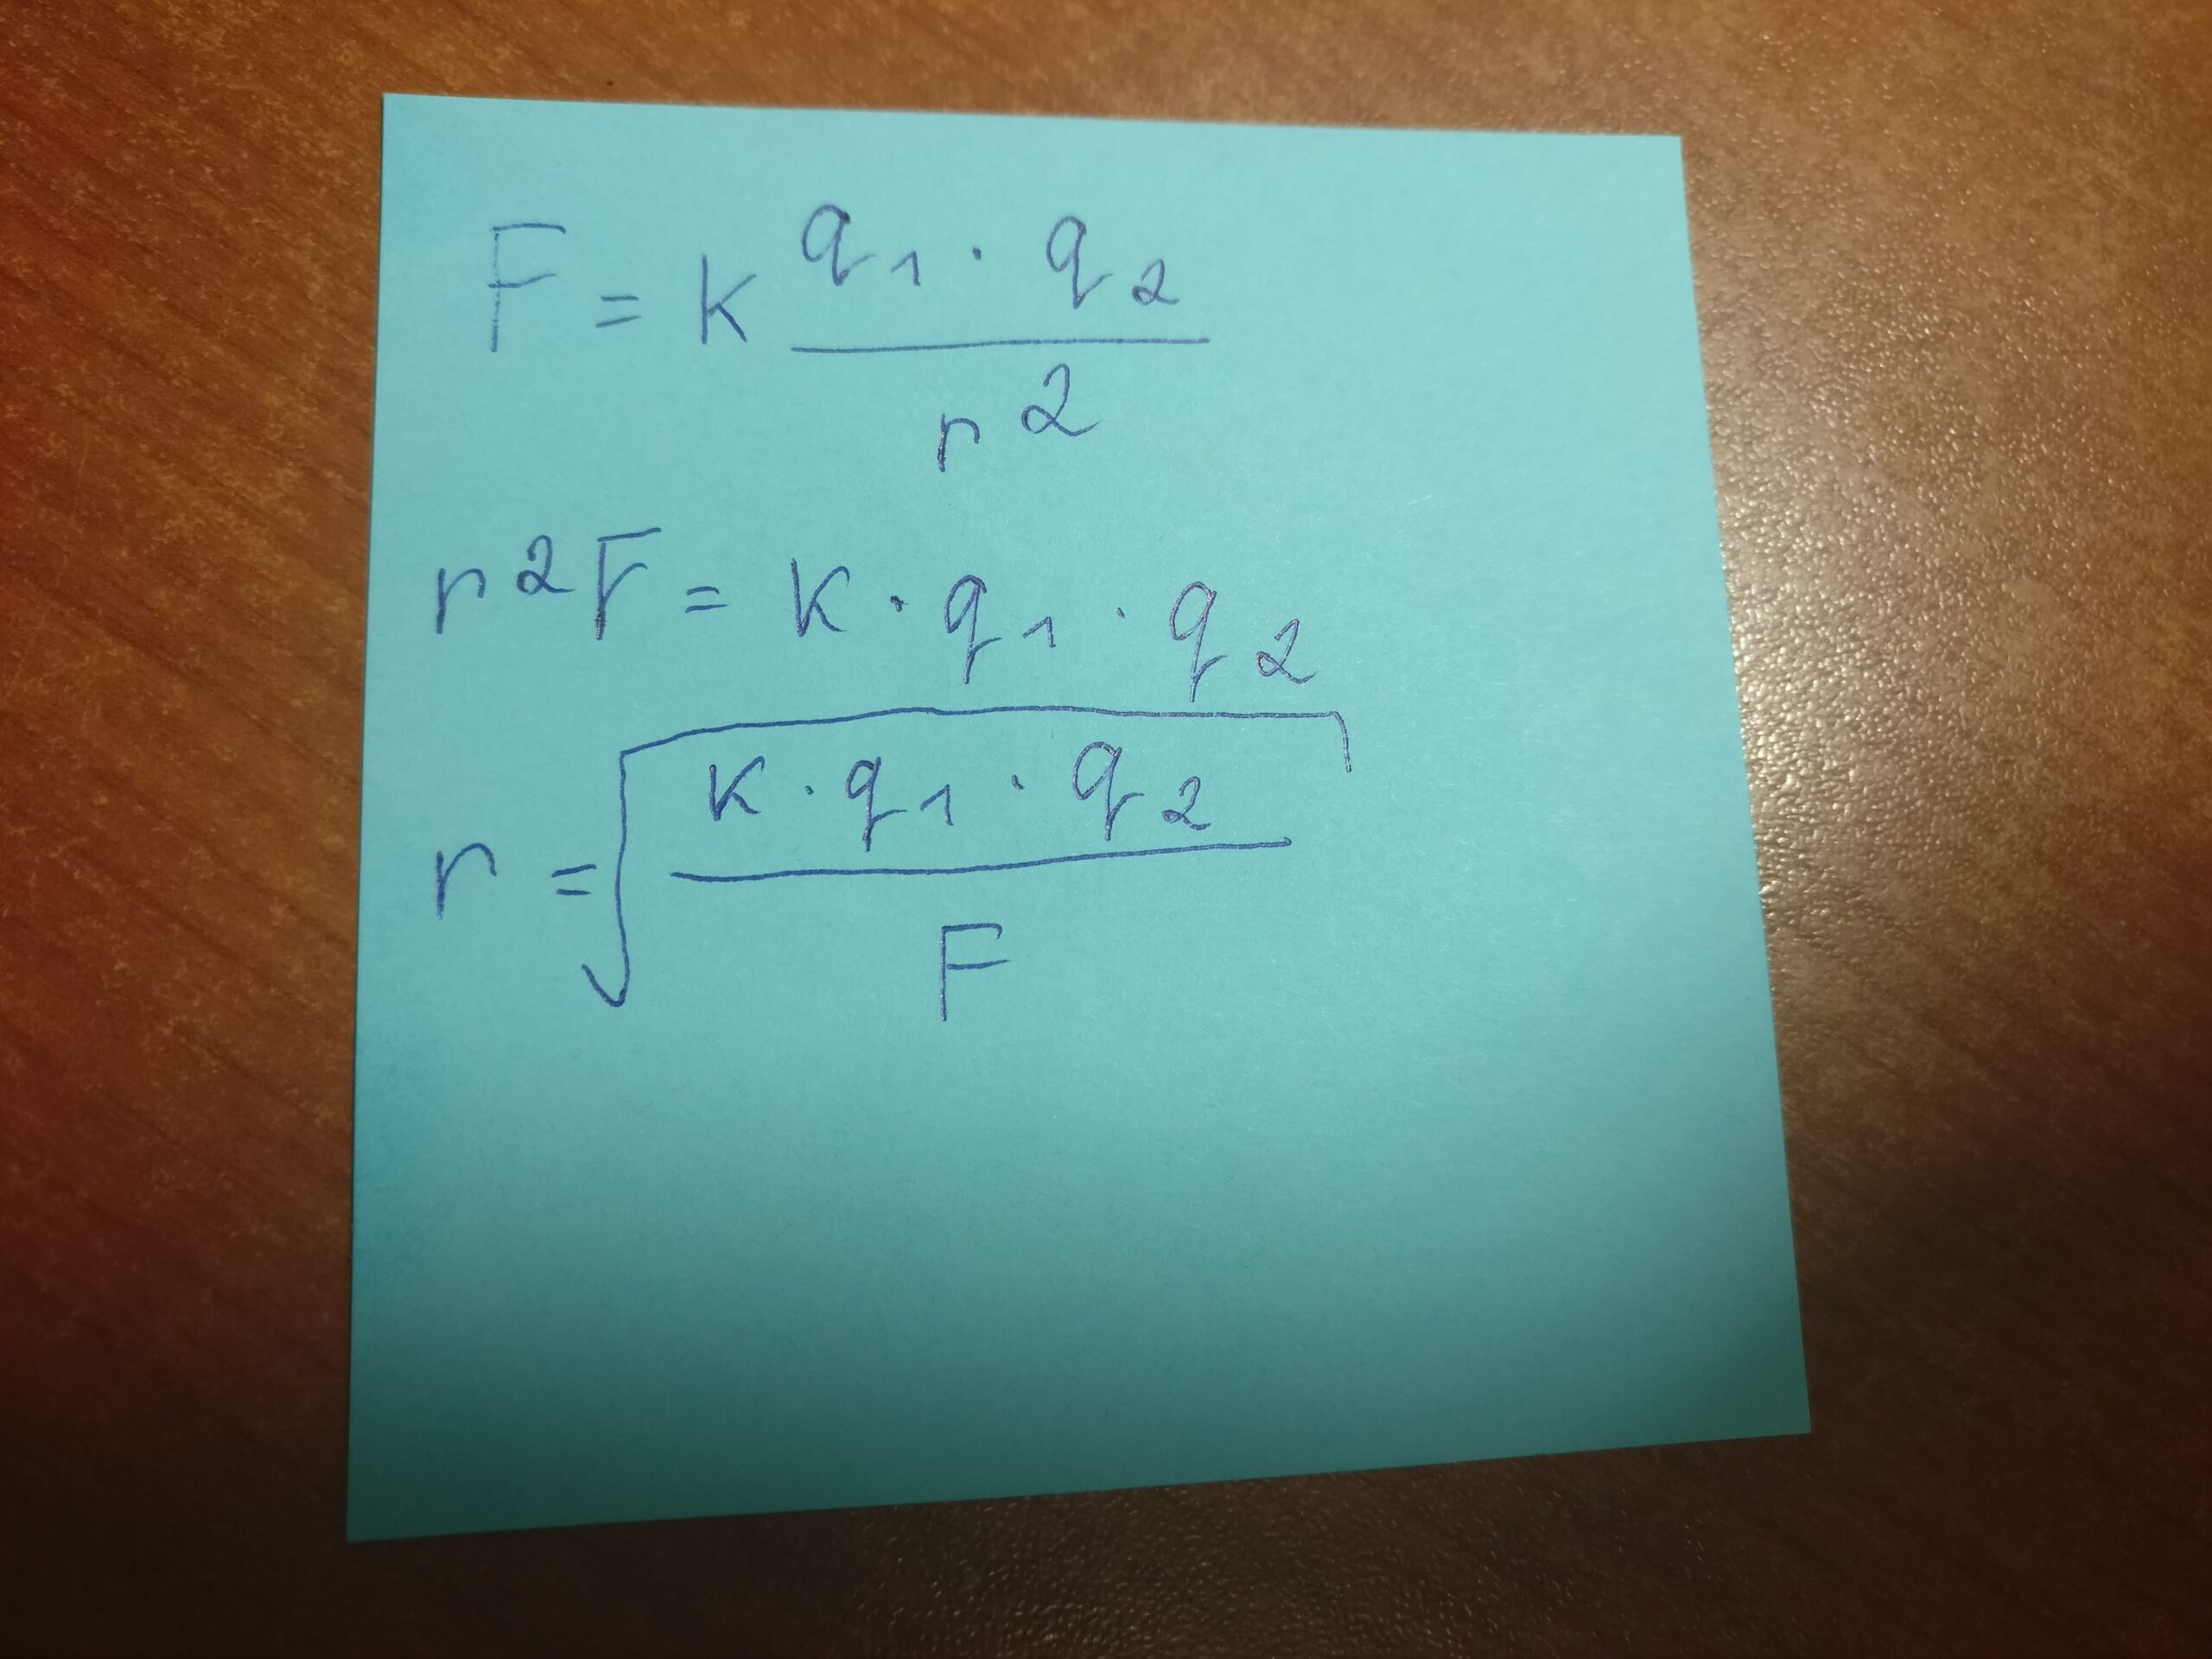 F = k q₁ · q₂ / r²
r²F = k · q₁ · q₂
r = √(k · q₁ · q₂ / F)